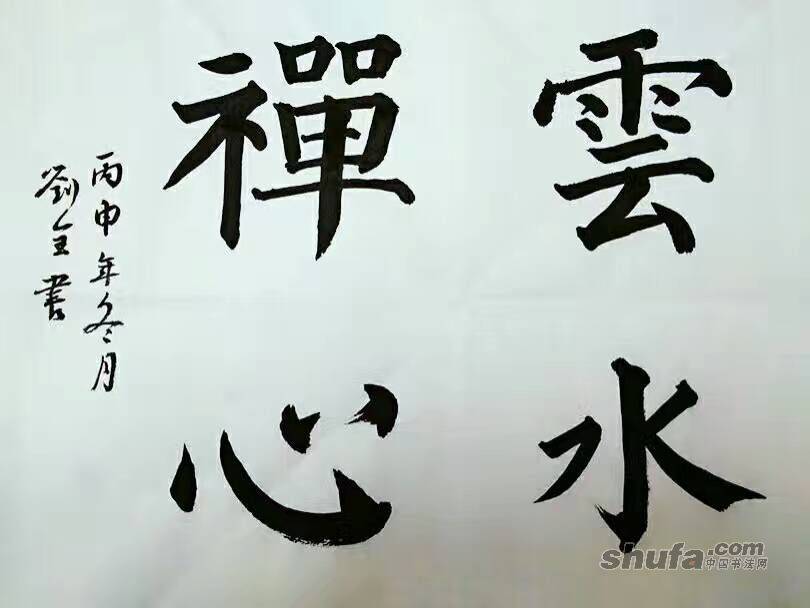 雲水
禪心
丙申年冬月
劉全書
shufa.com
中国书法网